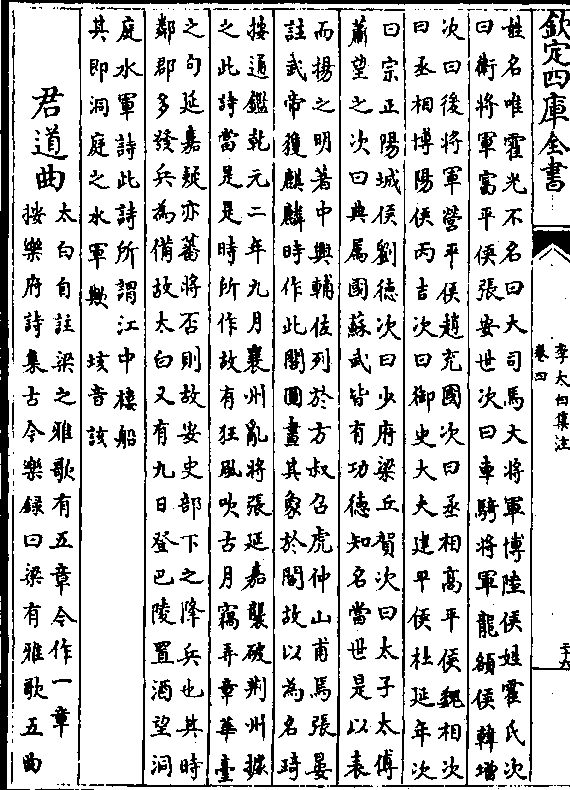 欽定四庫全書
李太白集注
卷四
姓名唯霍光不名曰大司馬大將軍博陸侯姓霍氏次
曰衛將軍富平侯張安世次曰車騎將軍龍頟侯韓增
次曰後將軍營平侯趙充國次曰丞相高平侯魏相次
曰丞相博陽侯丙吉次曰御史大夫建平侯杜延年次
曰宗正陽城侯劉德次曰少府梁丘賀次曰太子太傅
蕭望之次曰典属國蘇武皆有功德知名當世是以表
而揚之明著中興輔佐列於方叔召虎仲山甫焉張晏
註武帝獲麒麟時作此閣圖畫其象於閣故以為名琦
按通鑑乾元二年九月襄州亂將張延嘉襲破荆州據
之此詩當是是時所作故有狂風吹古月竊弄章華臺
之句延嘉疑亦蕃將否則故安史部下之降兵也其時
鄰郡多發兵為備故太白又有九日登巴陵置酒望洞
庭水軍詩此詩所謂江中樓船
其即洞庭之水軍歟 垓音該
君道曲
太白自註梁之雅歌有五章今作一章
按樂府詩集古今樂録曰梁有雅歌五曲